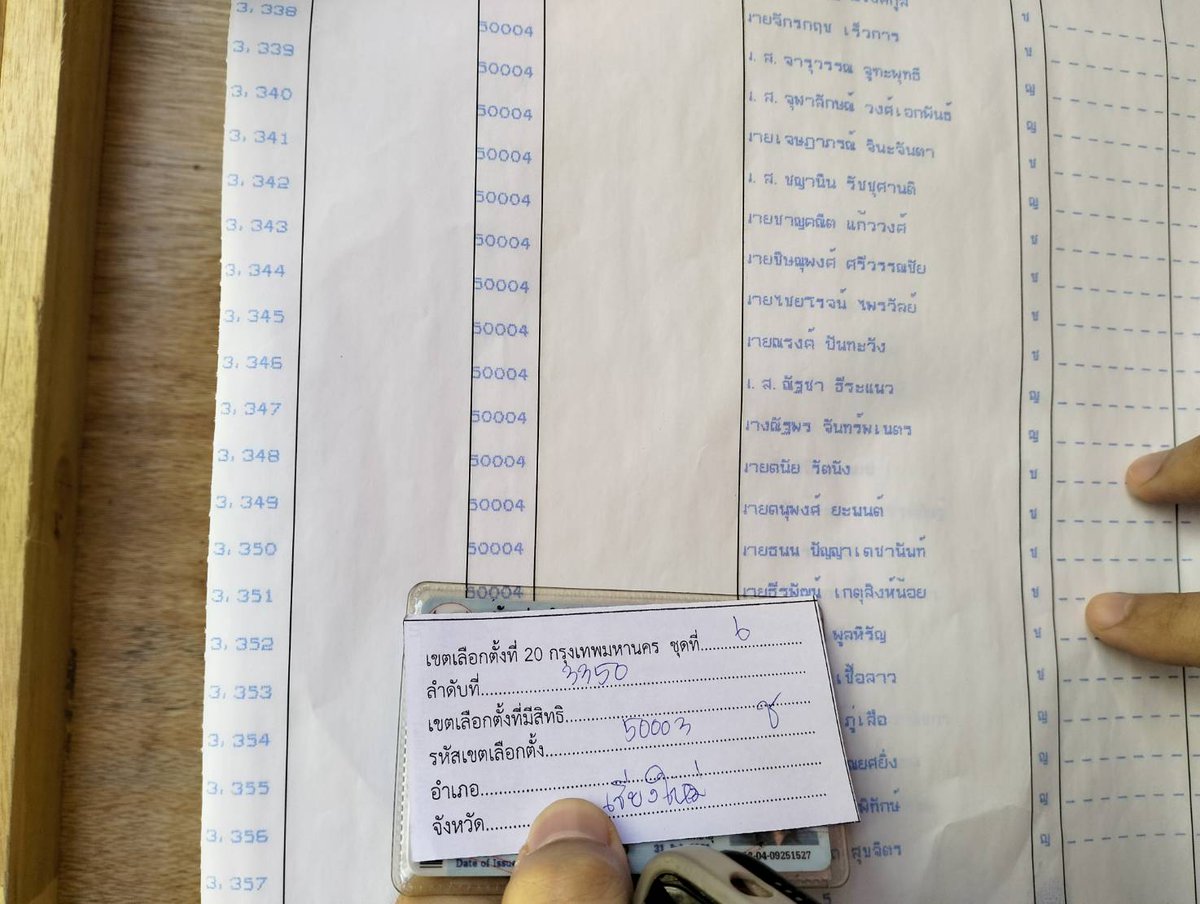 3,338 50004 นายจักรกฤช เร็วการ ช
3,339 50004 น.ส. จารุวรรณ จูฑะพุทธิ ญ
3,340 50004 น.ส. จุฬาลักษณ์ วงศ์เอกพันธ์ ญ
3,341 50004 นายเจษฎาภรณ์ จินะจันตา ช
3,342 50004 น.ส. ชญานิน รัชชุศานติ ญ
3,343 50004 นายชาญคณิต แก้ววงศ์ ช
3,344 50004 นายชิษณุพงศ์ ศรีวรรณชัย ช
3,345 50004 นายไชยโรจน์ ไพรวัลย์ ช
3,346 50004 นายณรงค์ ปันทะวัง ช
3,347 50004 น.ส. ณัฐชา ธีระแนว ญ
3,348 50004 นางณัฐพร จันทร์พเนตร ญ
3,349 50004 นายดนัย รัตนัง ช
3,350 50004 นายตนุพงศ์ ยะมนต์ ช
3,351 50004 นายธนน ปัญญาเตชานันท์ ช
3,352 50004 นายธีรพัฒน์ เกตุสิงห์น้อย ช
3,353 พูลหิรัญ ช
3,354 เชื้อลาว ช
3,355 ภู่เสือ ญ
3,356 ญ
3,357 พิทักษ์ ญ
สุขจิตร ญ
เขตเลือกตั้งที่ 20 กรุงเทพมหานคร ชุดที่ 6
ลำดับที่ 3350
เขตเลือกตั้งที่มีสิทธิ
รหัสเขตเลือกตั้ง 50003 ช
อำเภอ
จังหวัด เชียงใหม่
Date of Issue
-04-09251527